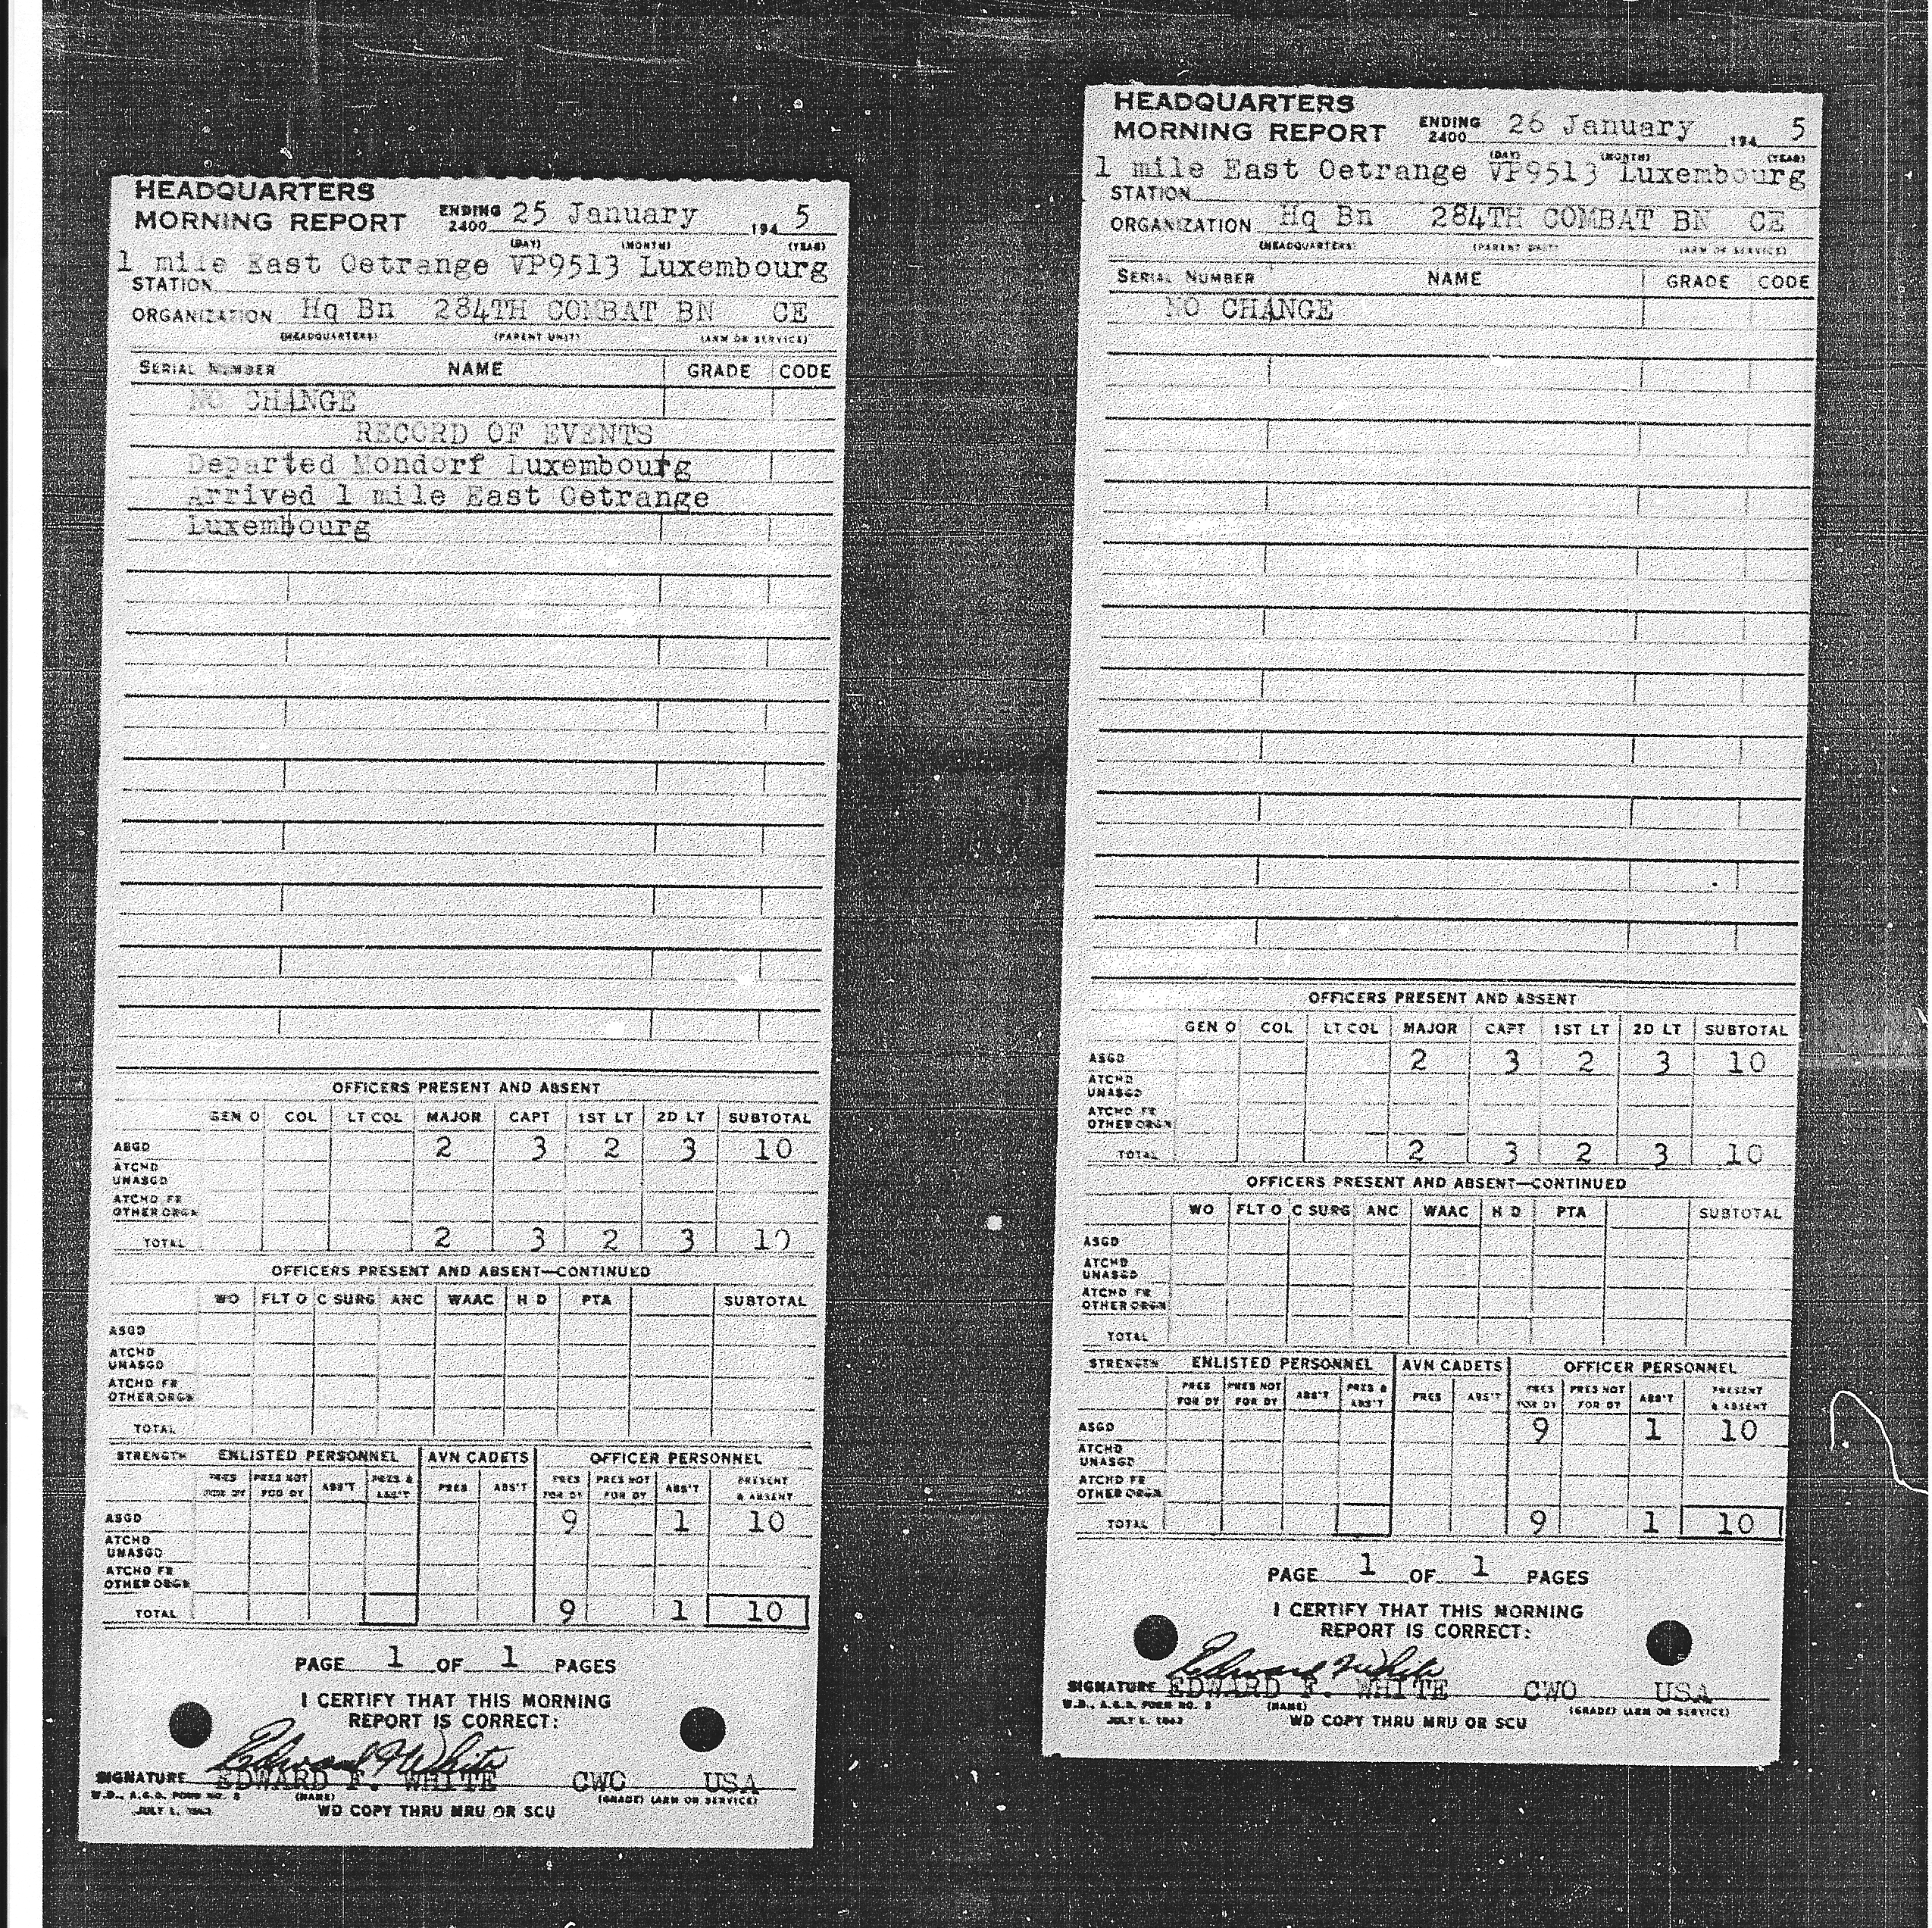 HEADQUARTERS
MORNING REPORT ENDING 2400 25 January 194 5
(DAY) (MONTH) (YEAR)
1 mile East Oetrange VP9513 Luxembourg
STATION
ORGANIZATION Hq Bn 284TH COMBAT BN CE
(HEADQUARTERS) (PARENT UNIT) (ARM OR SERVICE)
SERIAL NUMBER NAME GRADE CODE
NO CHANGE
RECORD OF EVENTS
Departed Mondorf Luxembourg
Arrived 1 mile East Oetrange
Luxembourg
OFFICERS PRESENT AND ABSENT
GEN O COL LT COL MAJOR CAPT 1ST LT 2D LT SUBTOTAL
ASGD 2 3 2 3 10
ATCHD
UNASGD
ATCHD FR
OTHER ORGN
TOTAL 2 3 2 3 10
OFFICERS PRESENT AND ABSENT—CONTINUED
WO FLT O C SURG ANC WAAC H D PTA SUBTOTAL
ASGD
ATCHD
UNASGD
ATCHD FR
OTHER ORGN
TOTAL
STRENGTH ENLISTED PERSONNEL AVN CADETS OFFICER PERSONNEL
PRES PRES NOT ABS'T PRES & PRES ABS'T PRES PRES NOT ABS'T PRESENT
FOR DY FOR DY ABS'T FOR DY FOR DY & ABSENT
ASGD 9 1 10
ATCHD
UNASGD
ATCHD FR
OTHER ORGN
TOTAL 9 1 10
PAGE 1 OF 1 PAGES
I CERTIFY THAT THIS MORNING
REPORT IS CORRECT:
Edward F White
SIGNATURE EDWARD F. WHITE CWO USA
W.D., A.G.O. FORM NO. (NAME) (GRADE) (ARM OR SERVICE)
JULY 1, WD COPY THRU MRU OR SCU
HEADQUARTERS
MORNING REPORT ENDING 2400 26 January 194 5
(DAY) (MONTH) (YEAR)
1 mile East Oetrange VP9513 Luxembourg
STATION
ORGANIZATION Hq Bn 284TH COMBAT BN CE
(HEADQUARTERS) (PARENT UNIT) (ARM OR SERVICE)
SERIAL NUMBER NAME GRADE CODE
NO CHANGE
OFFICERS PRESENT AND ABSENT
GEN O COL LT COL MAJOR CAPT 1ST LT 2D LT SUBTOTAL
ASGD 2 3 2 3 10
ATCHD
UNASGD
ATCHD FR
OTHER ORGN
TOTAL 2 3 2 3 10
OFFICERS PRESENT AND ABSENT—CONTINUED
WO FLT O C SURG ANC WAAC H D PTA SUBTOTAL
ASGD
ATCHD
UNASGD
ATCHD FR
OTHER ORGN
TOTAL
STRENGTH ENLISTED PERSONNEL AVN CADETS OFFICER PERSONNEL
PRES PRES NOT ABS'T PRES & PRES ABS'T PRES PRES NOT ABS'T PRESENT
FOR DY FOR DY ABS'T FOR DY FOR DY & ABSENT
ASGD 9 1 10
ATCHD
UNASGD
ATCHD FR
OTHER ORGN
TOTAL 9 1 10
PAGE 1 OF 1 PAGES
I CERTIFY THAT THIS MORNING
REPORT IS CORRECT:
Edward F White
SIGNATURE EDWARD F. WHITE CWO USA
W.D., A.G.O. FORM NO. (NAME) (GRADE) (ARM OR SERVICE)
JULY 1, WD COPY THRU MRU OR SCU